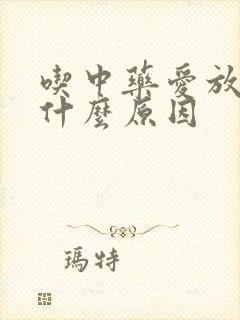 喫中藥愛放
什麼原因
瑪特